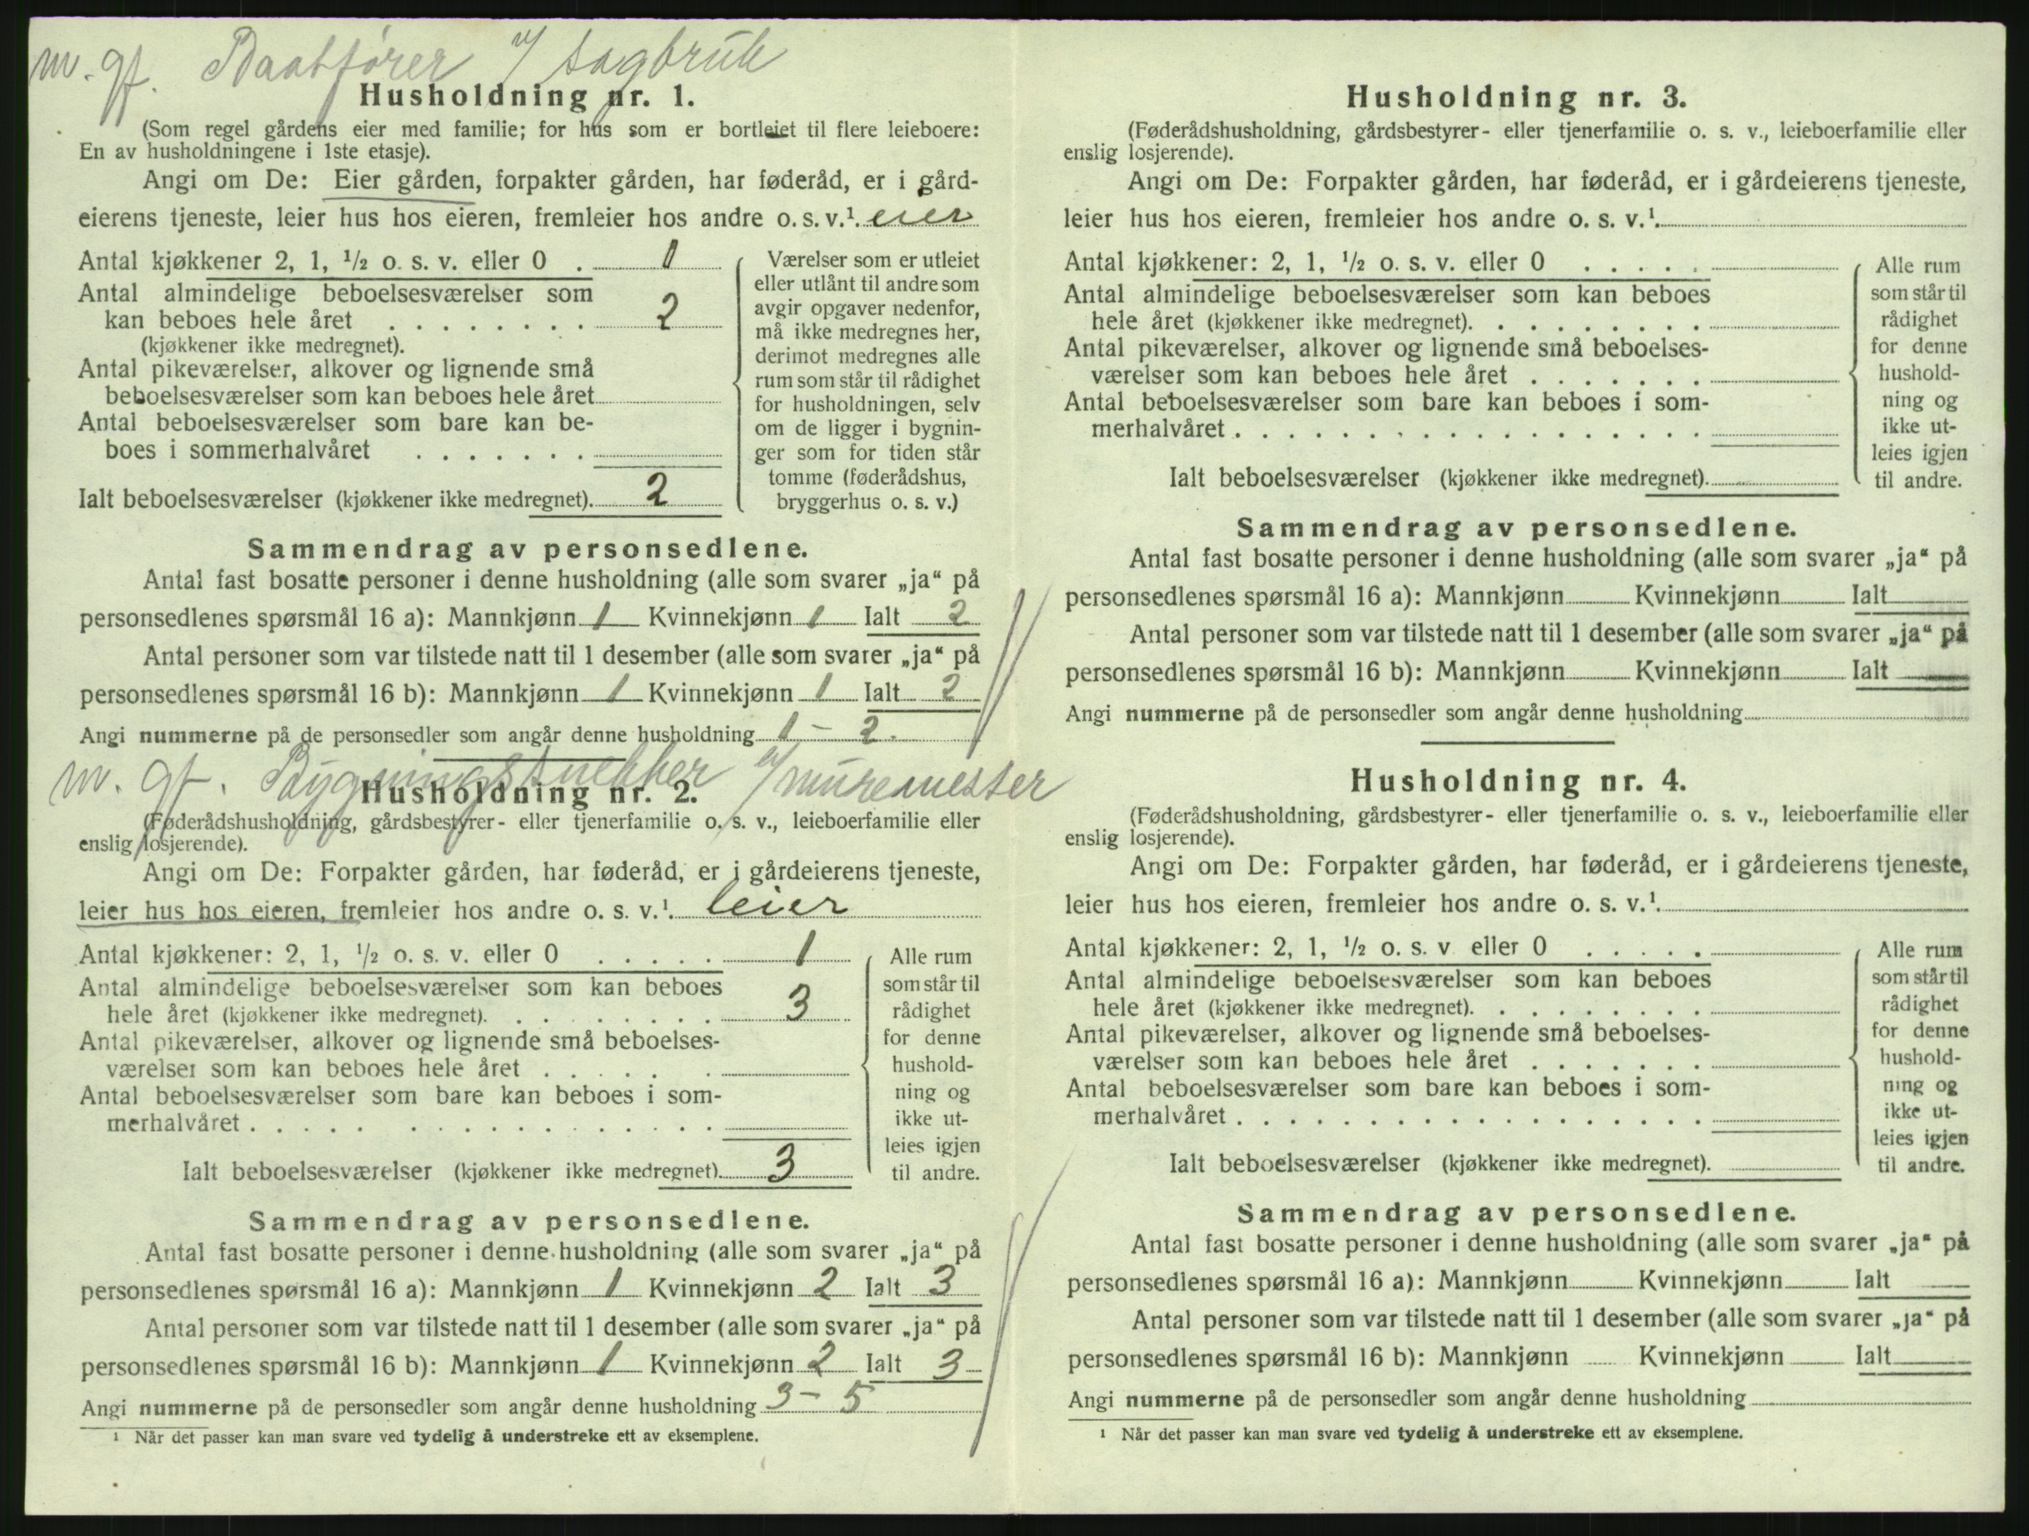 m. gf. Baatfører v/ sagbruk
Husholdning nr. 1.
(Som regel gårdens eier med familie; for hus som er bortleiet til flere leieboere:
En av husholdningene i 1ste etasje).
Angi om De: Eier gården, forpakter gården, har føderåd, er i gård-
eierens tjeneste, leier hus hos eieren, fremleier hos andre o. s. v.¹. eier
Antal kjøkkener 2, 1, ½ o. s. v. eller 0 . 1
Antal almindelige beboelsesværelser som
kan beboes hele året . . . . . . . . 2
(kjøkkener ikke medregnet).
Antal pikeværelser, alkover og lignende små
beboelsesværelser som kan beboes hele året
Antal beboelsesværelser som bare kan be-
boes i sommerhalvåret . . . . . . .
Ialt beboelsesværelser (kjøkkener ikke medregnet). 2
Værelser som er utleiet
eller utlånt til andre som
avgir opgaver nedenfor,
må ikke medregnes her,
derimot medregnes alle
rum som står til rådighet
for husholdningen, selv
om de ligger i bygnin-
ger som for tiden står
tomme (føderådshus,
bryggerhus o. s. v.)
Sammendrag av personsedlene.
Antal fast bosatte personer i denne husholdning (alle som svarer „ja“ på
personsedlenes spørsmål 16 a): Mannkjønn 1 Kvinnekjønn 1 Ialt 2
Antal personer som var tilstede natt til 1 desember (alle som svarer „ja“ på
personsedlenes spørsmål 16 b): Mannkjønn 1 Kvinnekjønn 1 Ialt 2
Angi nummerne på de personsedler som angår denne husholdning 1 – 2.
m. gf. Bygningssnekker v/ muremester
Husholdning nr. 2.
(Føderådshusholdning, gårdsbestyrer- eller tjenerfamilie o. s. v., leieboerfamilie eller
enslig losjerende).
Angi om De: Forpakter gården, har føderåd, er i gårdeierens tjeneste,
leier hus hos eieren, fremleier hos andre o. s. v.¹. leier
Antal kjøkkener: 2, 1, ½ o. s. v. eller 0 . . . . . 1
Antal almindelige beboelsesværelser som kan beboes
hele året (kjøkkener ikke medregnet). . . . . . . . . 3
Antal pikeværelser, alkover og lignende små beboelses-
værelser som kan beboes hele året . . . . . . .
Antal beboelsesværelser som bare kan beboes i som-
merhalvåret . . . . . . . . . . . . . . . . . .
Ialt beboelsesværelser (kjøkkener ikke medregnet). 3
Alle rum
som står til
rådighet
for denne
hushold-
ning og
ikke ut-
leies igjen
til andre.
Sammendrag av personsedlene.
Antal fast bosatte personer i denne husholdning (alle som svarer „ja“ på
personsedlenes spørsmål 16 a): Mannkjønn 1 Kvinnekjønn 2 Ialt 3
Antal personer som var tilstede natt til 1 desember (alle som svarer „ja“ på
personsedlenes spørsmål 16 b): Mannkjønn 1 Kvinnekjønn 2 Ialt 3
Angi nummerne på de personsedler som angår denne husholdning 3 – 5
¹ Når det passer kan man svare ved tydelig å understreke ett av eksemplene.
Husholdning nr. 3.
(Føderådshusholdning, gårdsbestyrer- eller tjenerfamilie o. s. v., leieboerfamilie eller
enslig losjerende).
Angi om De: Forpakter gården, har føderåd, er i gårdeierens tjeneste,
leier hus hos eieren, fremleier hos andre o. s. v.¹.
Antal kjøkkener: 2, 1, ½ o. s. v. eller 0 . . . . .
Antal almindelige beboelsesværelser som kan beboes
hele året (kjøkkener ikke medregnet). . . . . . . . .
Antal pikeværelser, alkover og lignende små beboelses-
værelser som kan beboes hele året . . . . . . .
Antal beboelsesværelser som bare kan beboes i som-
merhalvåret . . . . . . . . . . . . . . . . . .
Ialt beboelsesværelser (kjøkkener ikke medregnet).
Alle rum
som står til
rådighet
for denne
hushold-
ning og
ikke ut-
leies igjen
til andre.
Sammendrag av personsedlene.
Antal fast bosatte personer i denne husholdning (alle som svarer „ja“ på
personsedlenes spørsmål 16 a): Mannkjønn Kvinnekjønn Ialt
Antal personer som var tilstede natt til 1 desember (alle som svarer „ja“ på
personsedlenes spørsmål 16 b): Mannkjønn Kvinnekjønn Ialt
Angi nummerne på de personsedler som angår denne husholdning
Husholdning nr. 4.
(Føderådshusholdning, gårdsbestyrer- eller tjenerfamilie o. s. v., leieboerfamilie eller
enslig losjerende).
Angi om De: Forpakter gården, har føderåd, er i gårdeierens tjeneste,
leier hus hos eieren, fremleier hos andre o. s. v.¹.
Antal kjøkkener: 2, 1, ½ o. s. v eller 0 . . . . .
Antal almindelige beboelsesværelser som kan beboes
hele året (kjøkkener ikke medregnet). . . . . . . . .
Antal pikeværelser, alkover og lignende små beboelses-
værelser som kan beboes hele året . . . . . . .
Antal beboelsesværelser som bare kan beboes i som-
merhalvåret . . . . . . . . . . . . . . . . . .
Ialt beboelsesværelser (kjøkkener ikke medregnet).
Alle rum
som står til
rådighet
for denne
hushold-
ning og
ikke ut-
leies igjen
til andre.
Sammendrag av personsedlene.
Antal fast bosatte personer i denne husholdning (alle som svarer „ja“ på
personsedlenes spørsmål 16 a): Mannkjønn Kvinnekjønn Ialt
Antal personer som var tilstede natt til 1 desember (alle som svarer „ja“ på
personsedlenes spørsmål 16 b): Mannkjønn Kvinnekjønn Ialt
Angi nummerne på de personsedler som angår denne husholdning
¹ Når det passer kan man svare ved tydelig å understreke ett av eksemplene.